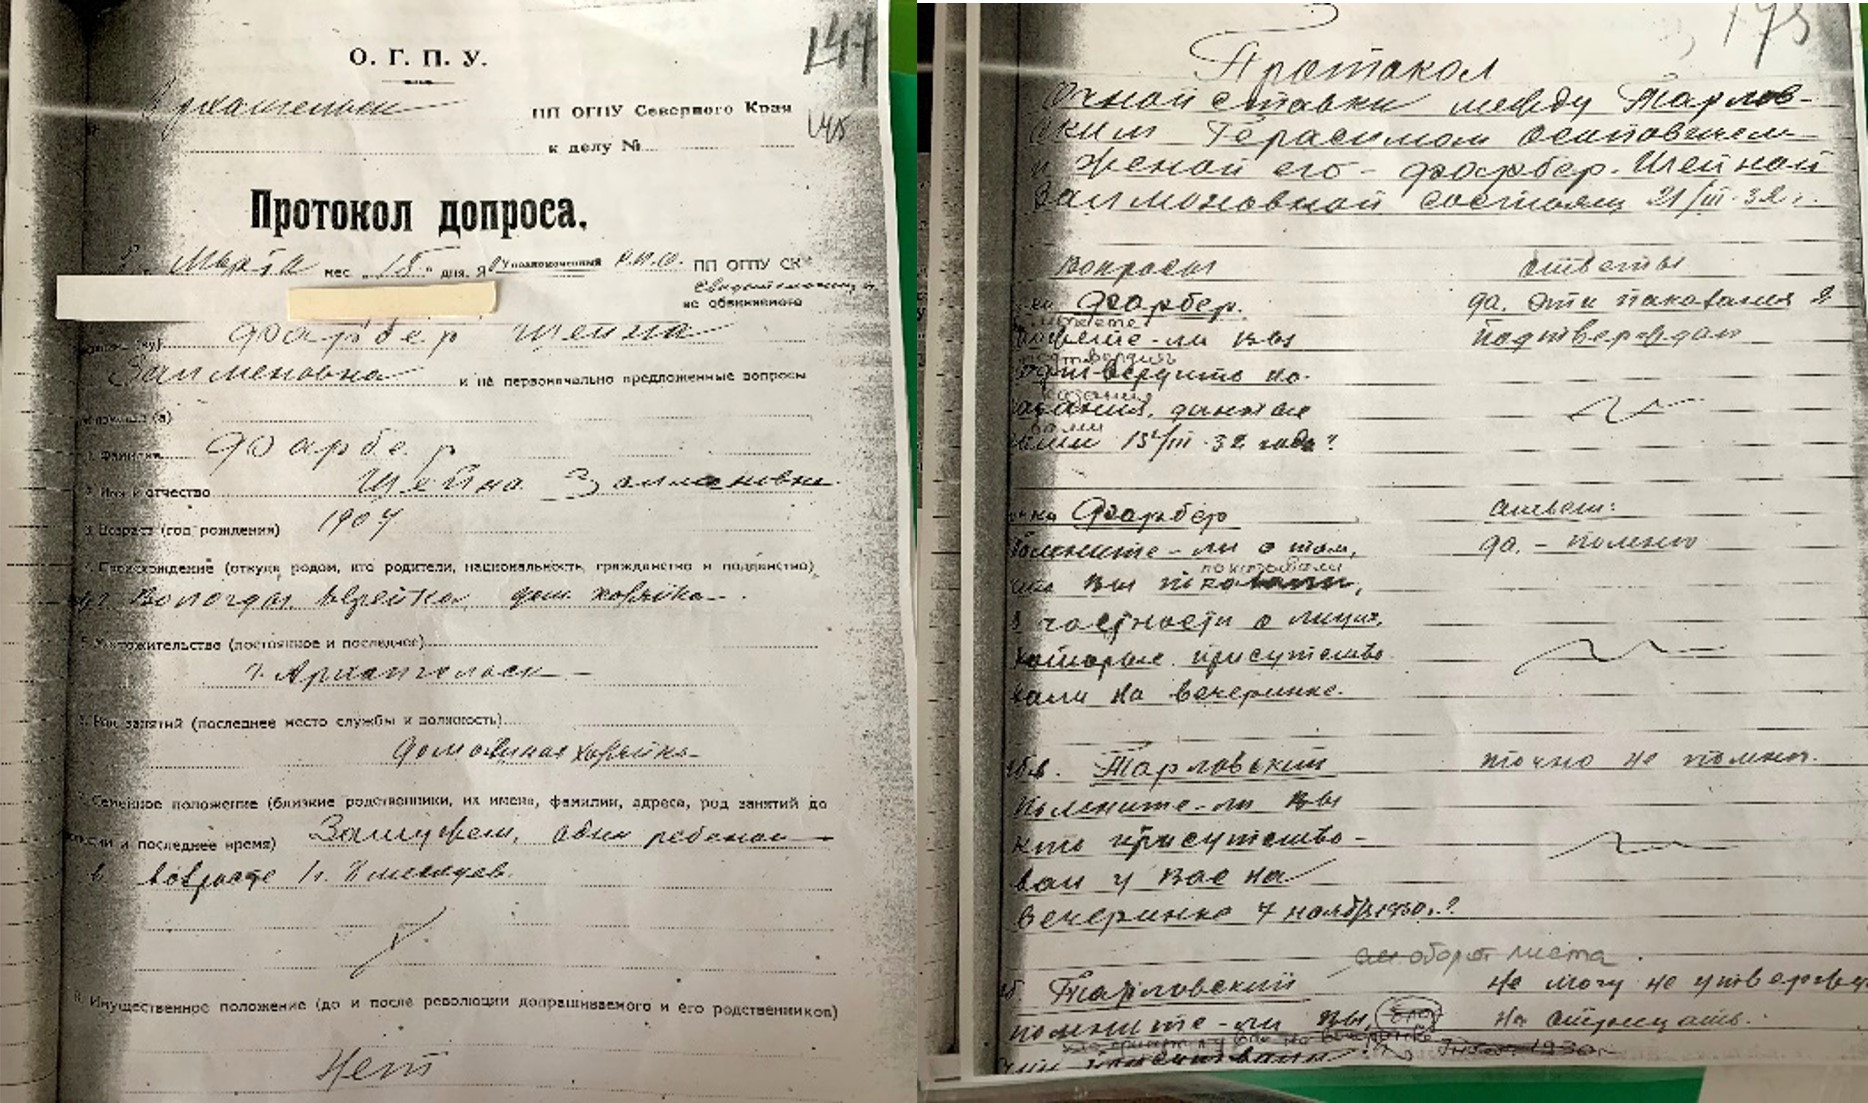 147
О. Г. П. У.
ПП ОГПУ Северного Края
к делу №
145
Протокол допроса.
Марта мес. "15" дня. Я, Уполномоченный ПП ОГПУ СК
обвиняемого
Фарбер Шейна
Залменовна и на первоначально предложенные вопросы
показал (а)
1. Фамилия Фарбер
2. Имя и отчество Шейна Залмановна
3. Возраст (год рождения) 1907
4. Происхождение (откуда родом, кто родители, национальность, гражданство и подданство)
Вологды, еврейка, дом. хозяйка.
5. Местожительство (постоянное и последнее)
г. Архангельск
6. Род занятий (последнее место службы и должность)
домашная хозяйка
7. Семейное положение (близкие родственники, их имена, фамилии, адреса, род занятий до
и последнее время) Замужем, один ребенок
в возрасте 1 г. месяцев.
8. Имущественное положение (до и после революции допрашиваемого и его родственников)
Нет
175
Протокол
Очной ставки между Тарлов-
ским Герасимом Осиповичем
и женой его - Фарбер. Шейной
Залмоновной 21/III-32 г.
Вопросы Ответы
Фарбер. да. эти показания я
можете
-ли Вы подтверждаю
подтвердить
по-
казания
данные
вами
15/III-32 года?
Фарбер ответ:
Помните-ли о том, да. - помню
показали
что Вы
в частности о лицах,
которые присутство
вали на вечеринке.
Тарловский точно не помню.
Помните-ли Вы
кто присутство-
вал у Вас на
вечеринке 7 ноября 1930 г.?
на оборот листа
Тарловский не могу не
помните-ли Вы, не отрицать.